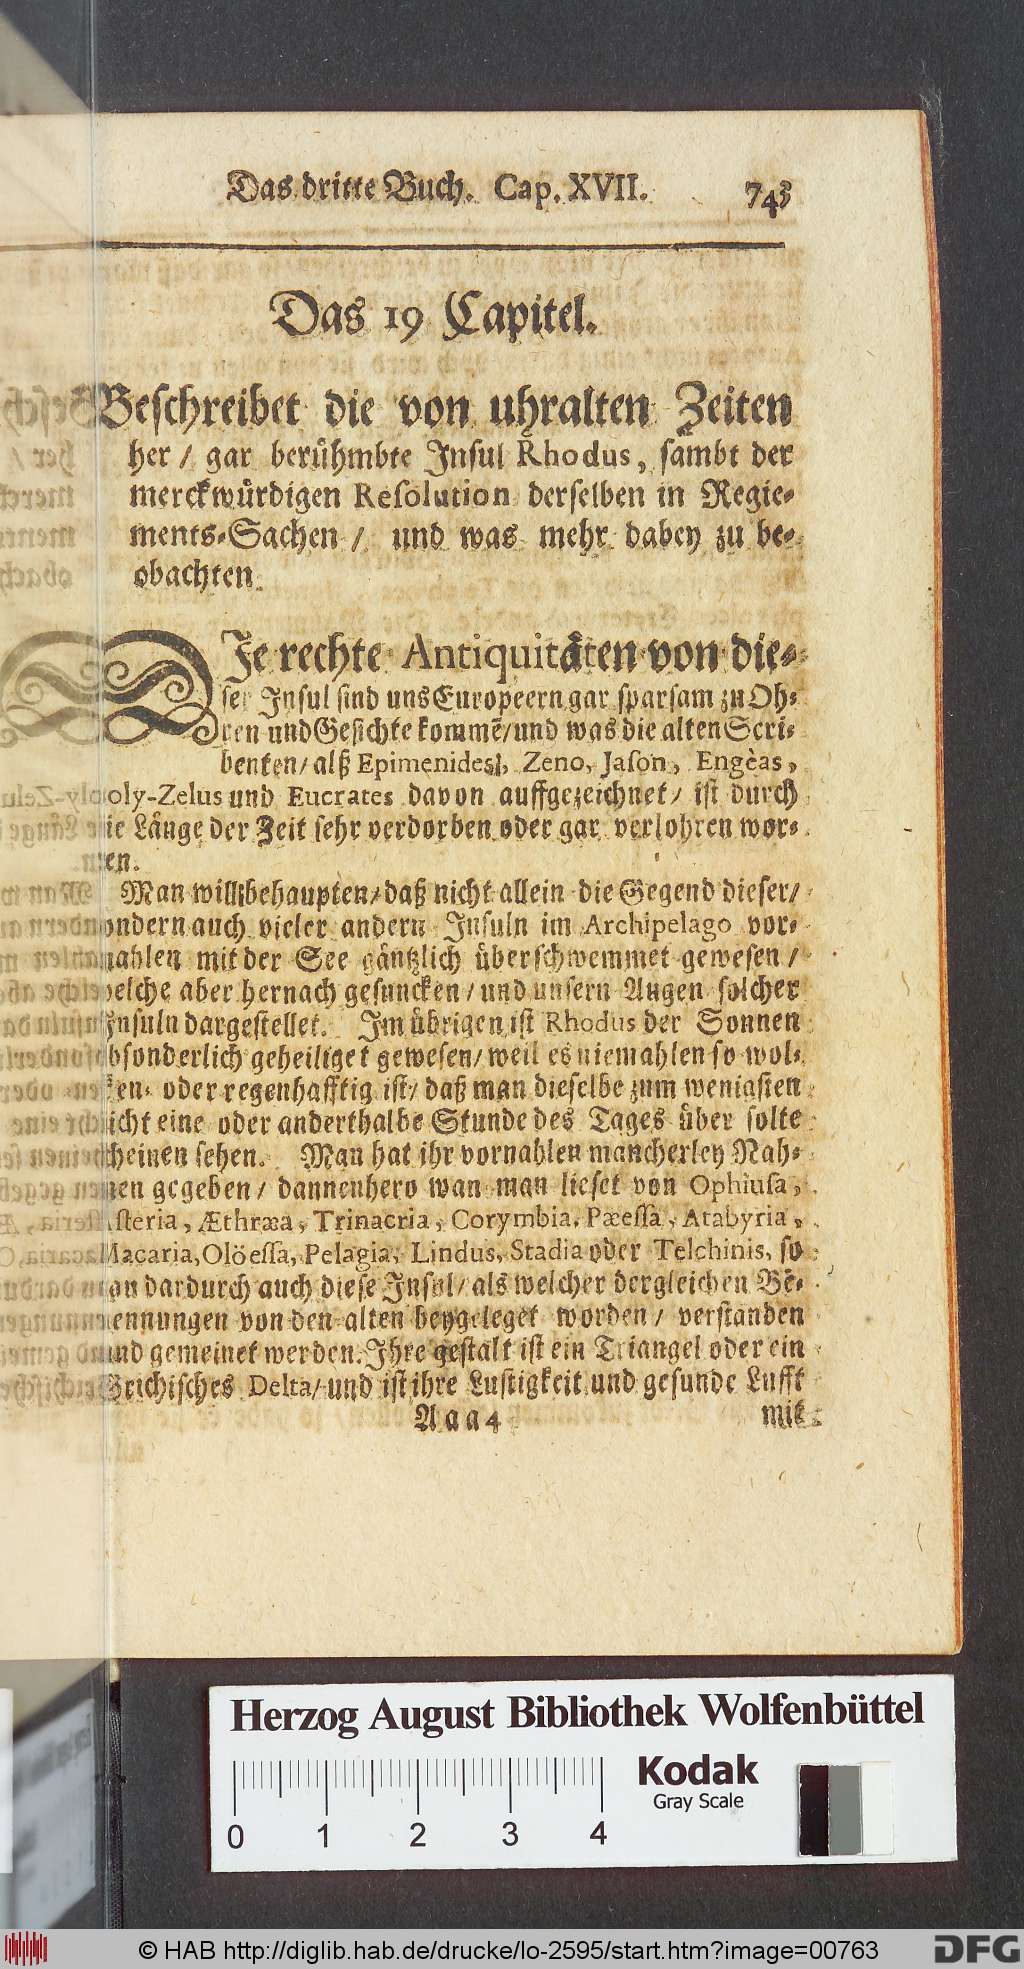 Das dritte Buch. Cap. XVII. 743
Das 19 Capitel.
Beschreibet die von uhralten Zeiten
her / gar berühmbte Insul Rhodus, sambt der
merckwürdigen Resolution derselben in Regie-
ments-Sachen / und was mehr dabey zu be-
obachten.
DJe rechte Antiquitäten von die-
ser Insul sind uns Europeern gar sparsam zu Oh-
ren und Gesichte kommẽ / und was die alten Scri-
benten / alß Epimenides, Zeno, Jason, Engèas,
Poly-Zelus und Eucrates davon auffgezeichnet / ist durch
die Länge der Zeit sehr verdorben oder gar verlohren wor-
den.
Man will behaupten / daß nicht allein die Gegend dieser /
sondern auch vieler andern Insuln im Archipelago vor-
mahlen mit der See gäntzlich überschwemmet gewesen /
welche aber hernach gesuncken / und unsern Augen solcher
Insuln dargestellet. Im übrigen ist Rhodus der Sonnen
absonderlich geheiliget gewesen / weil es niemahlen so wol-
cken- oder regenhafftig ist / daß man dieselbe zum wenigsten
nicht eine oder anderthalbe Stunde des Tages über solte
scheinen sehen. Man hat ihr vornahlen mancherley Nah-
men gegeben / dannenhero wan man lieset von Ophiusa,
Asteria, Æthræa, Trinacria, Corymbia, Pæessa, Atabyria,
Macaria, Olöessa, Pelagia, Lindus, Stadia oder Telchinis, so
man dardurch auch diese Insul / als welcher dergleichen Be-
nennungen von den alten beygeleget worden / verstanden
und gemeinet werden. Ihre gestalt ist ein Triangel oder ein
Grichisches Delta / und ist ihre Lustigkeit und gesunde Lufft
Aaa 4 mit
Herzog August Bibliothek Wolfenbüttel
Kodak
Gray Scale
0 1 2 3 4
© HAB http://diglib.hab.de/drucke/lo-2595/start.htm?image=00763
DFG